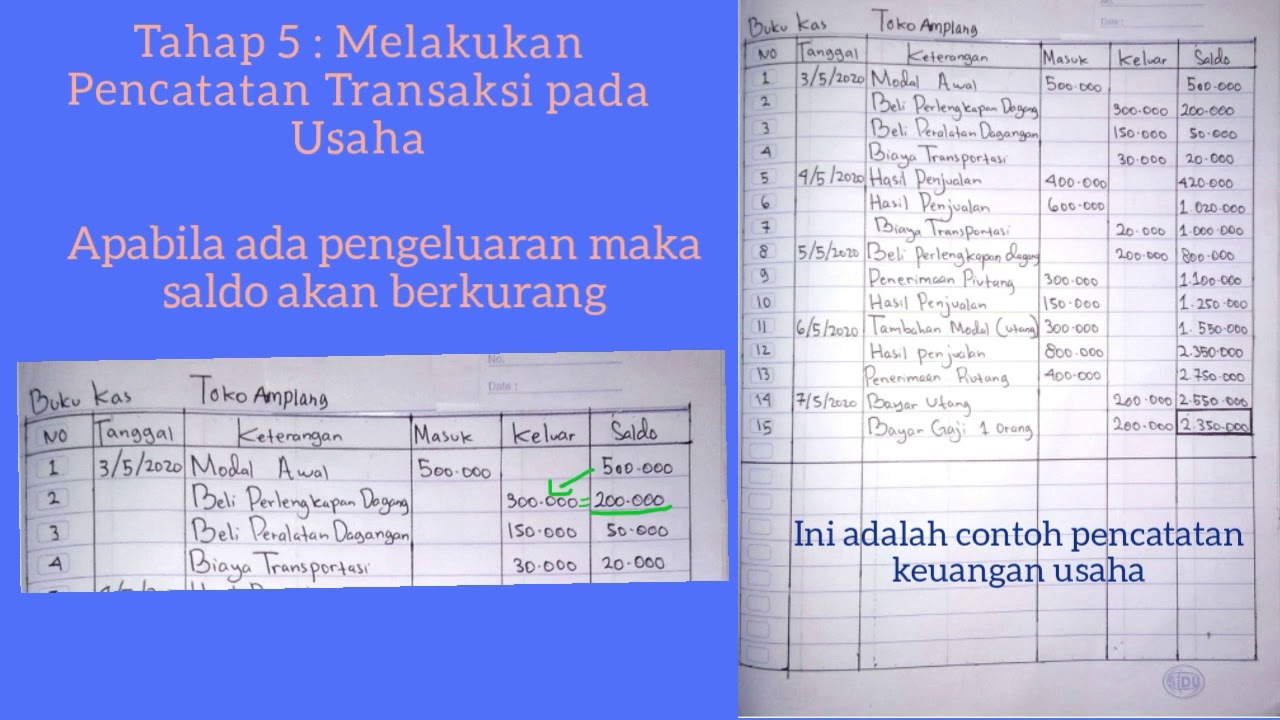 Tahap 5 : Melakukan
Pencatatan Transaksi pada
Usaha
Apabila ada pengeluaran maka
saldo akan berkurang
No.
Date :
Buku Kas Toko Amplang
NO Tanggal Keterangan Masuk Keluar Saldo
1 3/5/2020 Modal Awal 500.000 500.000
2 Beli Perlengkapan Dagang 300.000 = 200.000
3 Beli Peralatan Dagangan 150.000 50.000
4 Biaya Transportasi 30.000 20.000
No.
Date :
Buku Kas Toko Amplang
NO Tanggal Keterangan Masuk Keluar Saldo
1 3/5/2020 Modal Awal 500.000 500.000
2 Beli Perlengkapan Dagang 300.000 200.000
3 Beli Peralatan Dagangan 150.000 50.000
4 Biaya Transportasi 30.000 20.000
5 4/5/2020 Hasil Penjualan 400.000 420.000
6 Hasil Penjualan 600.000 1.020.000
7 Biaya Transportasi 20.000 1.000.000
8 5/5/2020 Beli Perlengkapan dagang 200.000 800.000
9 Penerimaan Piutang 300.000 1.100.000
10 Hasil Penjualan 150.000 1.250.000
11 6/5/2020 Tambahan Modal (utang) 300.000 1.550.000
12 Hasil penjualan 800.000 2.350.000
13 Penerimaan Piutang 400.000 2.750.000
14 7/5/2020 Bayar Utang 200.000 2.550.000
15 Bayar Gaji 1 Orang 200.000 2.350.000
Ini adalah contoh pencatatan
keuangan usaha
SIDU